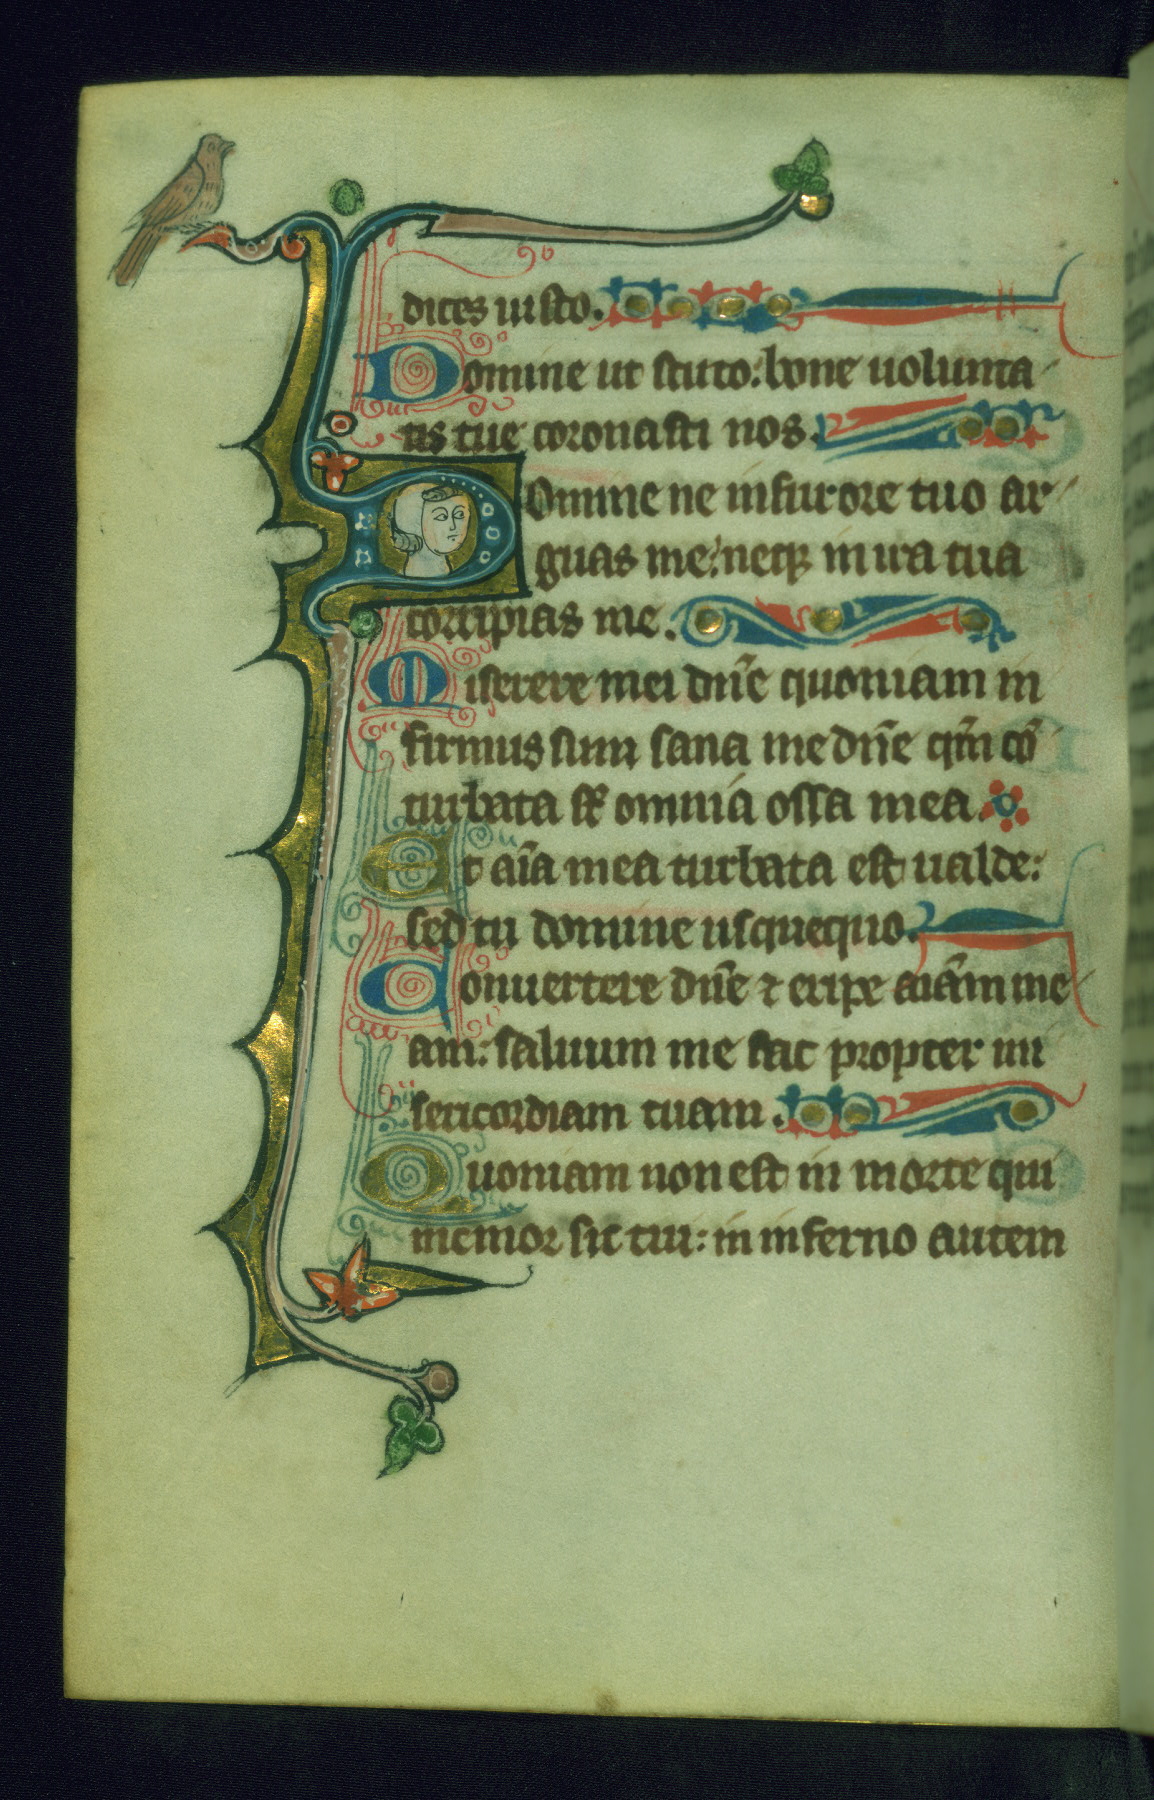 dices iusto.
Domine ut scuto: bone uolunta
tis tue coronasti nos.
Domine ne in furore tuo ar
guas me: neq; in ira tua
corripias me.
Miserere mei dn̄e quoniam in
firmus sum sana me dn̄e qm̄ cō
turbata st̄ omnia ossa mea.
Et aīa mea turbata est ualde:
sed tu domine usquequo.
Conuertere dn̄e ⁊ eripe aiām me
am: saluum me fac propter mi
sericordiam tuam.
Quoniam non est in morte qui
memor sit tui: in inferno autem